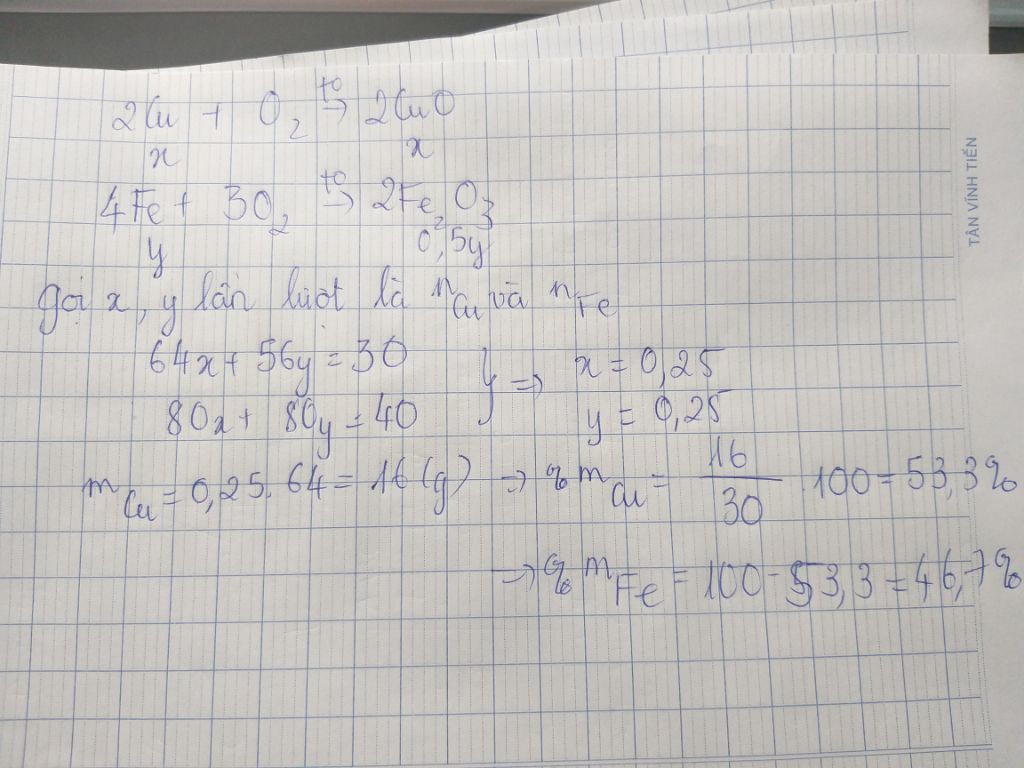 2Cu + O2 t0→ 2CuO
x x
4Fe + 3O2 t0→ 2Fe2O3
y 0,5y
gọi x, y lần lượt là nCu và nFe
64x + 56y = 30
80x + 80y = 40
} => x = 0,25
y = 0,25
mCu = 0,25. 64 = 16 (g) → % mCu = 16/30 .100 = 53,3%
→ % mFe = 100 - 53,3 = 46,7%
TÂN VĨNH TIẾN